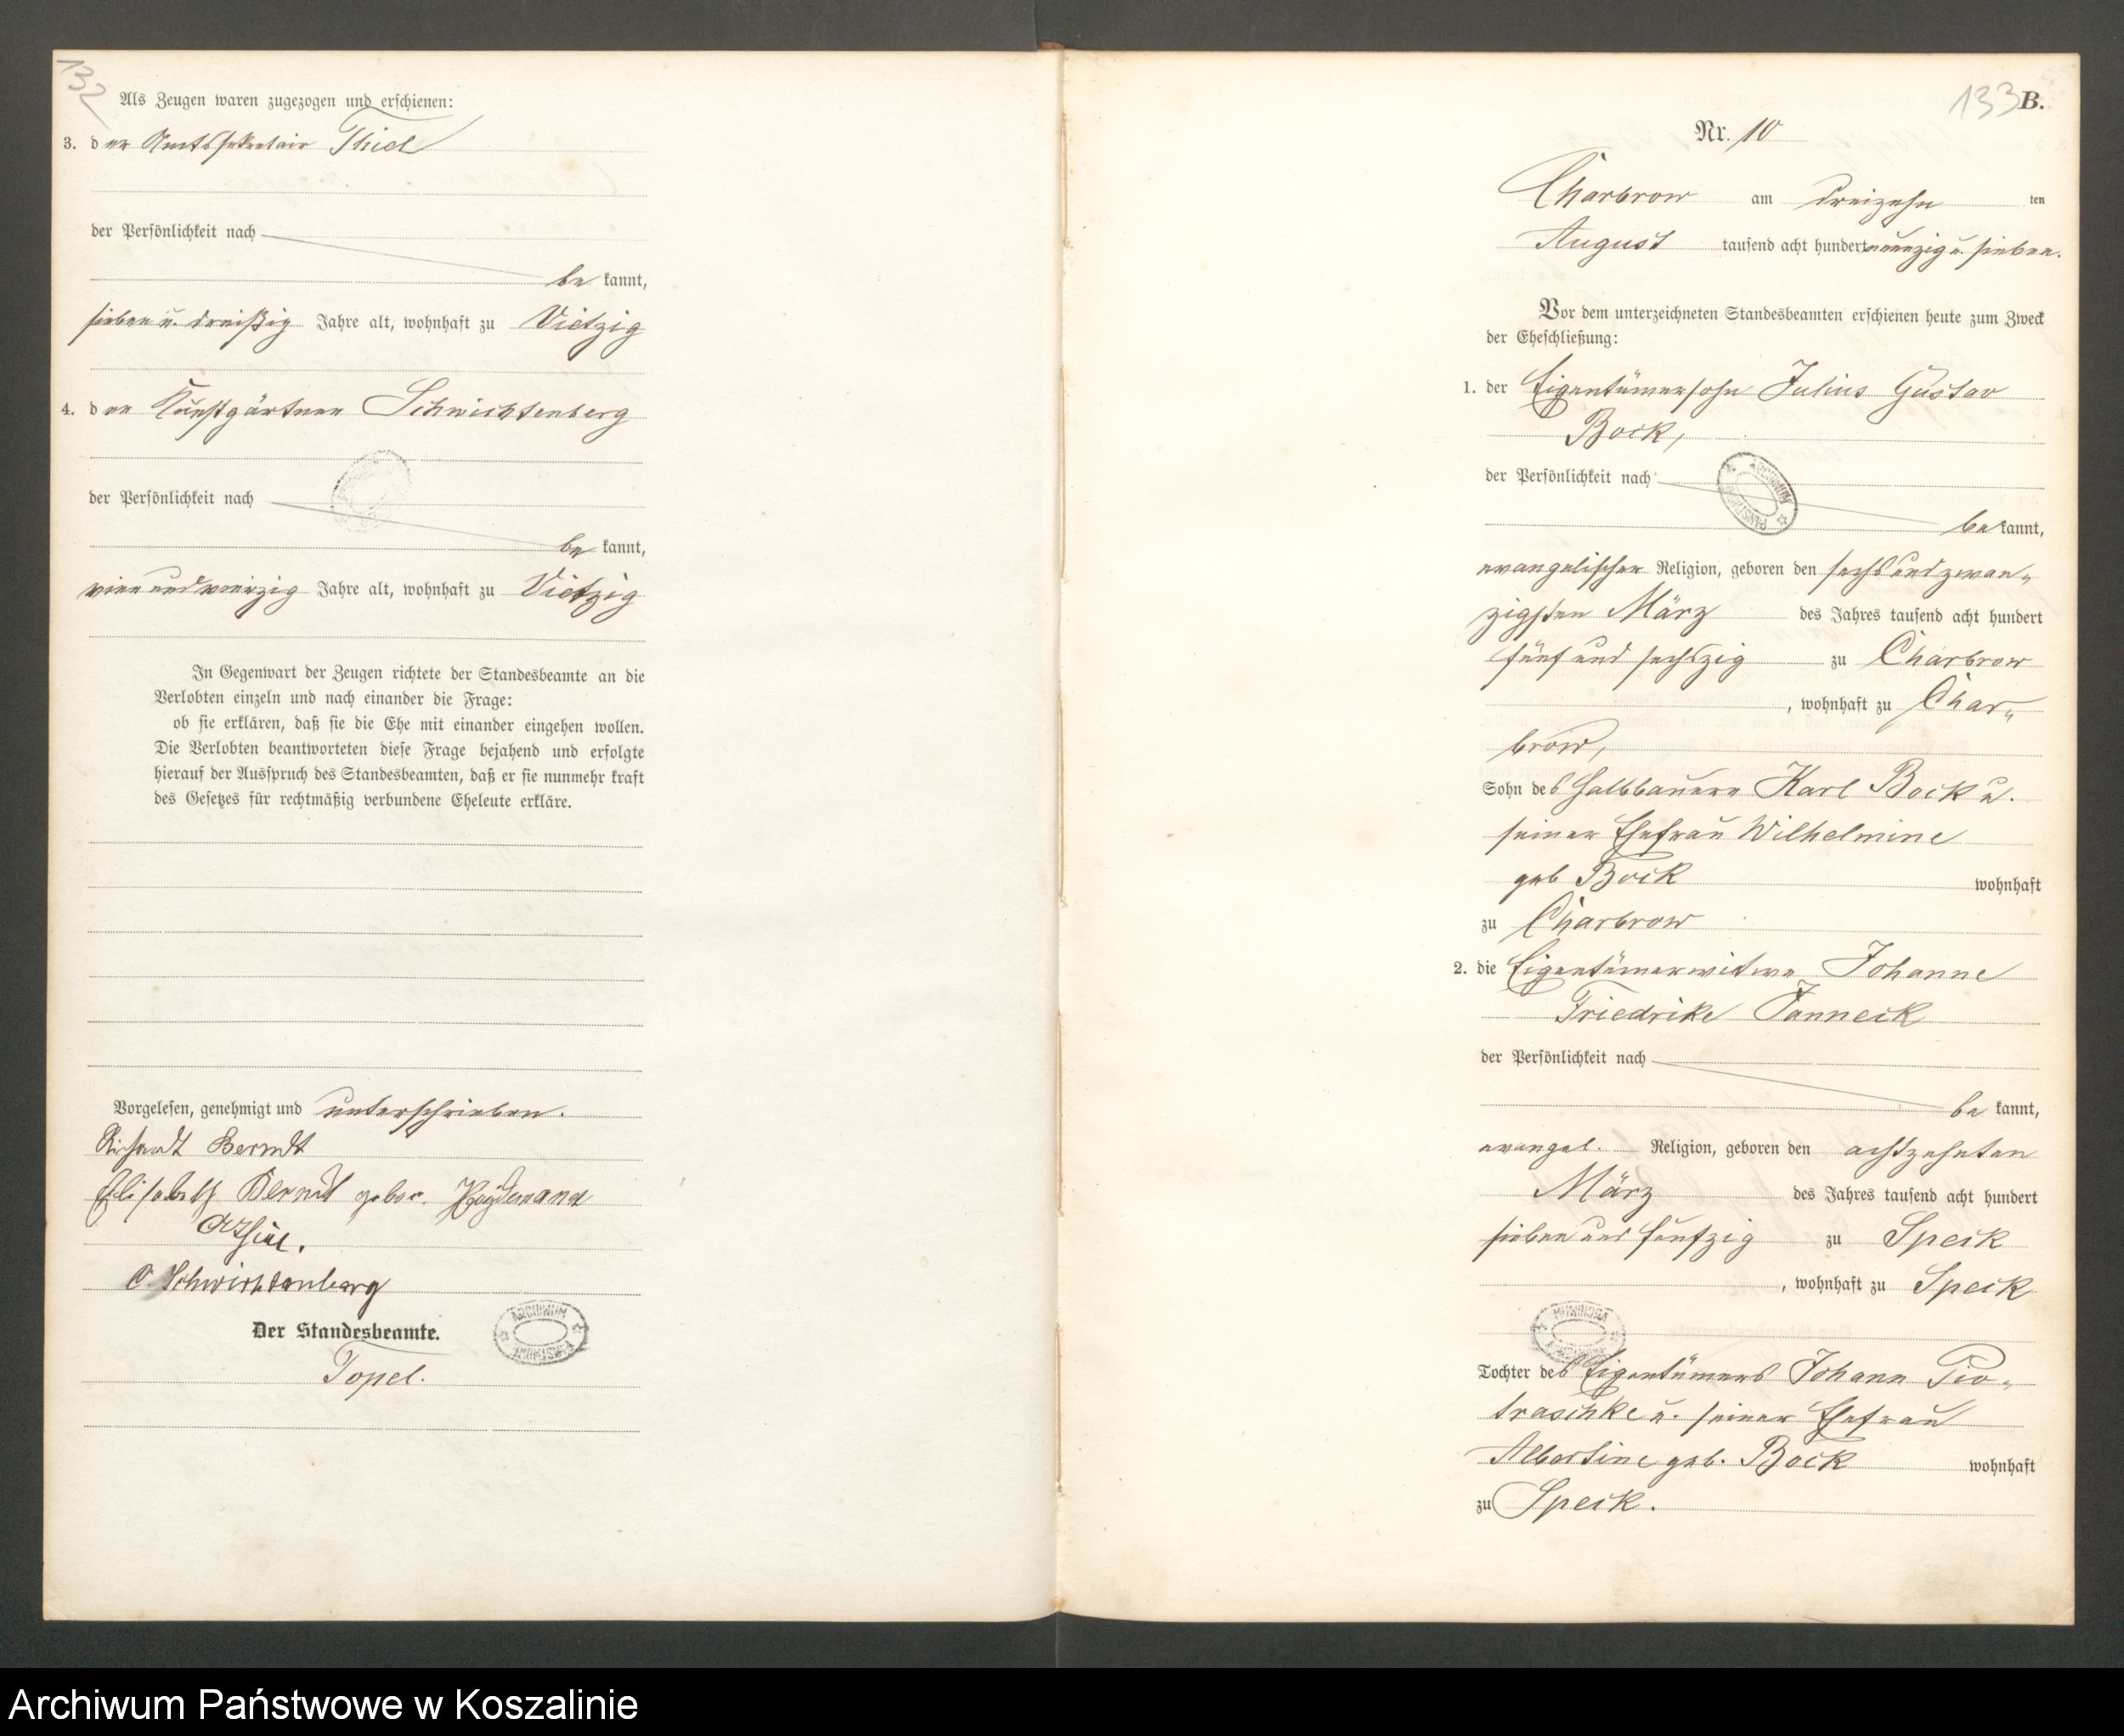 132
Als Zeugen waren zugezogen und erschienen:
3. der Amtssekretair Thiel
der Persönlichkeit nach
be kannt,
sieben u. dreißig Jahre alt, wohnhaft zu Vietzig
4. der Kunstgärtner Schwichtenberg
der Persönlichkeit nach
be kannt,
vier und vierzig Jahre alt, wohnhaft zu Vietzig
In Gegenwart der Zeugen richtete der Standesbeamte an die
Verlobten einzeln und nach einander die Frage:
ob sie erklären, daß sie die Ehe mit einander eingehen wollen.
Die Verlobten beantworteten diese Frage bejahend und erfolgte
hierauf der Ausspruch des Standesbeamten, daß er sie nunmehr kraft
des Gesetzes für rechtmäßig verbundene Eheleute erkläre.
Vorgelesen, genehmigt und unterschrieben.
Richardt Berndt
Elisabeth Berndt gebor. Heydemann
Thiel.
C. Schwichtenberg
Der Standesbeamte.
Topel.
133 B.
Nr. 10
Charbrow am dreizehn ten
August tausend acht hundert neunzig u. sieben.
Vor dem unterzeichneten Standesbeamten erschienen heute zum Zweck
der Eheschließung:
1. der Eigentümersohn Julius Gustav
Bock,
der Persönlichkeit nach
ARCHIWUM
be kannt,
evangelischer Religion, geboren den sechsundzwan-
zigsten März des Jahres tausend acht hundert
fünf und sechszig zu Charbrow
, wohnhaft zu Char-
brow,
Sohn des Halbbauern Karl Bock u.
seiner Ehefrau Wilhelmine
geb Bock wohnhaft
zu Charbrow
2. die Eigentümerwitwe Johanne
Friedrike Janneck
der Persönlichkeit nach
be kannt,
evangel. Religion, geboren den achtzehnten
März des Jahres tausend acht hundert
sieben und fünfzig zu Speck
, wohnhaft zu Speck
ARCHIWUM
Tochter des Eigentümers Johann Pio-
traschke u. seiner Ehefrau
Albertine geb. Bock wohnhaft
zu Speck.
Archiwum Państwowe w Koszalinie